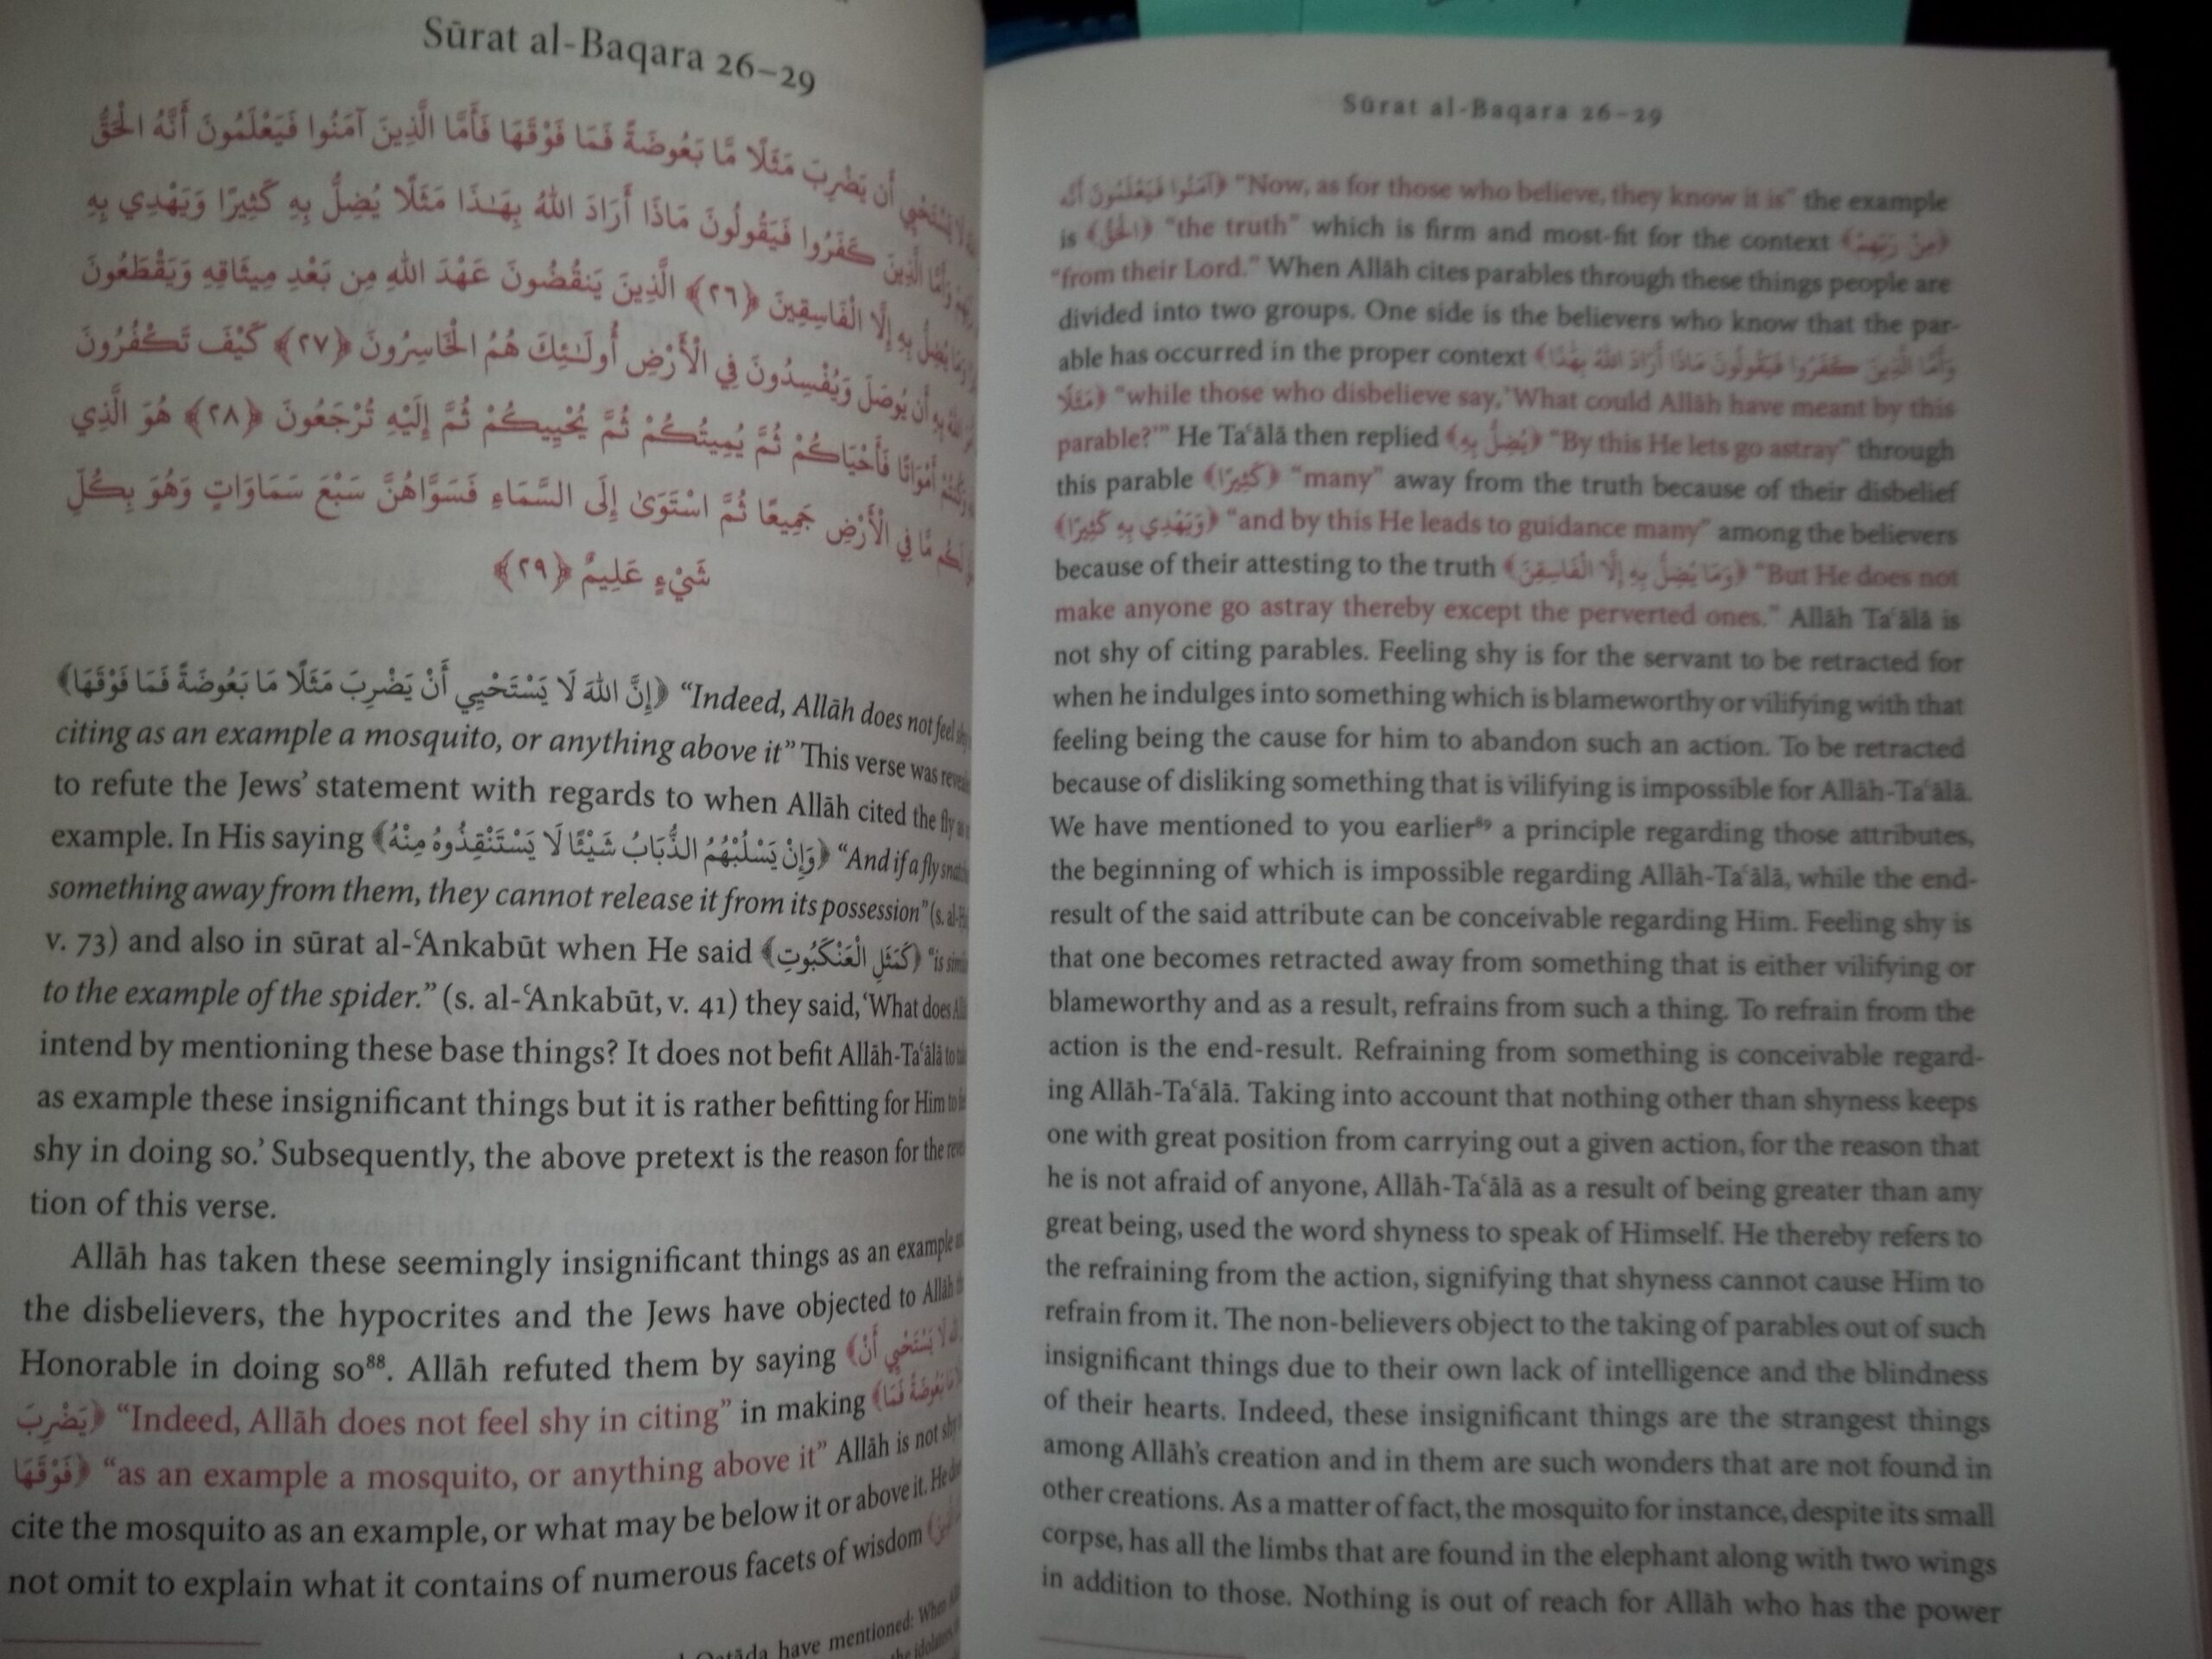 Sūrat al-Baqara 26–29
أَن يَضْرِبَ مَثَلًا مَّا بَعُوضَةً فَمَا فَوْقَهَا فَأَمَّا الَّذِينَ آمَنُوا فَيَعْلَمُونَ أَنَّهُ الْحَقُّ
الَّذِينَ كَفَرُوا فَيَقُولُونَ مَاذَا أَرَادَ اللهُ بِهَـٰذَا مَثَلًا يُضِلُّ بِهِ كَثِيرًا وَيَهْدِي بِهِ
يُضِلُّ بِهِ إِلَّا الْفَاسِقِينَ ﴿٢٦﴾ الَّذِينَ يَنقُضُونَ عَهْدَ اللهِ مِن بَعْدِ مِيثَاقِهِ وَيَقْطَعُونَ
بِهِ أَن يُوصَلَ وَيُفْسِدُونَ فِي الْأَرْضِ أُولَـٰئِكَ هُمُ الْخَاسِرُونَ ﴿٢٧﴾ كَيْفَ تَكْفُرُونَ
أَمْوَاتًا فَأَحْيَاكُمْ ثُمَّ يُمِيتُكُمْ ثُمَّ يُحْيِيكُمْ ثُمَّ إِلَيْهِ تُرْجَعُونَ ﴿٢٨﴾ هُوَ الَّذِي
لَكُم مَّا فِي الْأَرْضِ جَمِيعًا ثُمَّ اسْتَوَىٰ إِلَى السَّمَاءِ فَسَوَّاهُنَّ سَبْعَ سَمَاوَاتٍ وَهُوَ بِكُلِّ
شَيْءٍ عَلِيمٌ ﴿٢٩﴾
﴿إِنَّ اللهَ لَا يَسْتَحْيِي أَنْ يَضْرِبَ مَثَلًا مَا بَعُوضَةً فَمَا فَوْقَهَا﴾ “Indeed, Allāh does not feel
citing as an example a mosquito, or anything above it” This verse was
to refute the Jews’ statement with regards to when Allāh cited the fly
example. In His saying ﴿وَإِنْ يَسْلُبْهُمُ الذُّبَابُ شَيْئًا لَا يَسْتَنْقِذُوهُ مِنْهُ﴾ “And if a fly
something away from them, they cannot release it from its possession” (s.
v. 73) and also in sūrat al-ʿAnkabūt when He said ﴿كَمَثَلِ الْعَنْكَبُوتِ﴾ “is
to the example of the spider.” (s. al-ʿAnkabūt, v. 41) they said, ‘What does
intend by mentioning these base things? It does not befit Allāh-Taʿālā
as example these insignificant things but it is rather befitting for Him
shy in doing so.’ Subsequently, the above pretext is the reason for the
tion of this verse.
Allāh has taken these seemingly insignificant things as an example
the disbelievers, the hypocrites and the Jews have objected to Allāh
Honorable in doing so⁸⁸. Allāh refuted them by saying لَا يَسْتَحْيِي أَنْ﴾
﴿يَضْرِبَ “Indeed, Allāh does not feel shy in citing” in making بَعُوضَةً فَمَا﴾
﴿فَوْقَهَا “as an example a mosquito, or anything above it” Allāh is not
cite the mosquito as an example, or what may be below it or above it. He
not omit to explain what it contains of numerous facets of wisdom
have mentioned: When
Sūrat al-Baqara 26–29
آمَنُوا فَيَعْلَمُونَ أَنَّهُ﴾ “Now, as for those who believe, they know it is” the example
is ﴿الْحَقُّ﴾ “the truth” which is firm and most-fit for the context ﴿مِنْ رَبِّهِمْ﴾
“from their Lord.” When Allāh cites parables through these things people are
divided into two groups. One side is the believers who know that the par-
able has occurred in the proper context ﴿وَأَمَّا الَّذِينَ كَفَرُوا فَيَقُولُونَ مَاذَا أَرَادَ اللهُ بِهَٰذَا
مَثَلًا﴾ “while those who disbelieve say, ‘What could Allāh have meant by this
parable?’” He Taʿālā then replied ﴿يُضِلُّ بِهِ﴾ “By this He lets go astray” through
this parable ﴿كَثِيرًا﴾ “many” away from the truth because of their disbelief
﴿وَيَهْدِي بِهِ كَثِيرًا﴾ “and by this He leads to guidance many” among the believers
because of their attesting to the truth ﴿وَمَا يُضِلُّ بِهِ إِلَّا الْفَاسِقِينَ﴾ “But He does not
make anyone go astray thereby except the perverted ones.” Allāh Taʿālā is
not shy of citing parables. Feeling shy is for the servant to be retracted for
when he indulges into something which is blameworthy or vilifying with that
feeling being the cause for him to abandon such an action. To be retracted
because of disliking something that is vilifying is impossible for Allāh-Taʿālā.
We have mentioned to you earlier⁸⁹ a principle regarding those attributes,
the beginning of which is impossible regarding Allāh-Taʿālā, while the end-
result of the said attribute can be conceivable regarding Him. Feeling shy is
that one becomes retracted away from something that is either vilifying or
blameworthy and as a result, refrains from such a thing. To refrain from the
action is the end-result. Refraining from something is conceivable regard-
ing Allāh-Taʿālā. Taking into account that nothing other than shyness keeps
one with great position from carrying out a given action, for the reason that
he is not afraid of anyone, Allāh-Taʿālā as a result of being greater than any
great being, used the word shyness to speak of Himself. He thereby refers to
the refraining from the action, signifying that shyness cannot cause Him to
refrain from it. The non-believers object to the taking of parables out of such
insignificant things due to their own lack of intelligence and the blindness
of their hearts. Indeed, these insignificant things are the strangest things
among Allāh’s creation and in them are such wonders that are not found in
other creations. As a matter of fact, the mosquito for instance, despite its small
corpse, has all the limbs that are found in the elephant along with two wings
in addition to those. Nothing is out of reach for Allāh who has the power